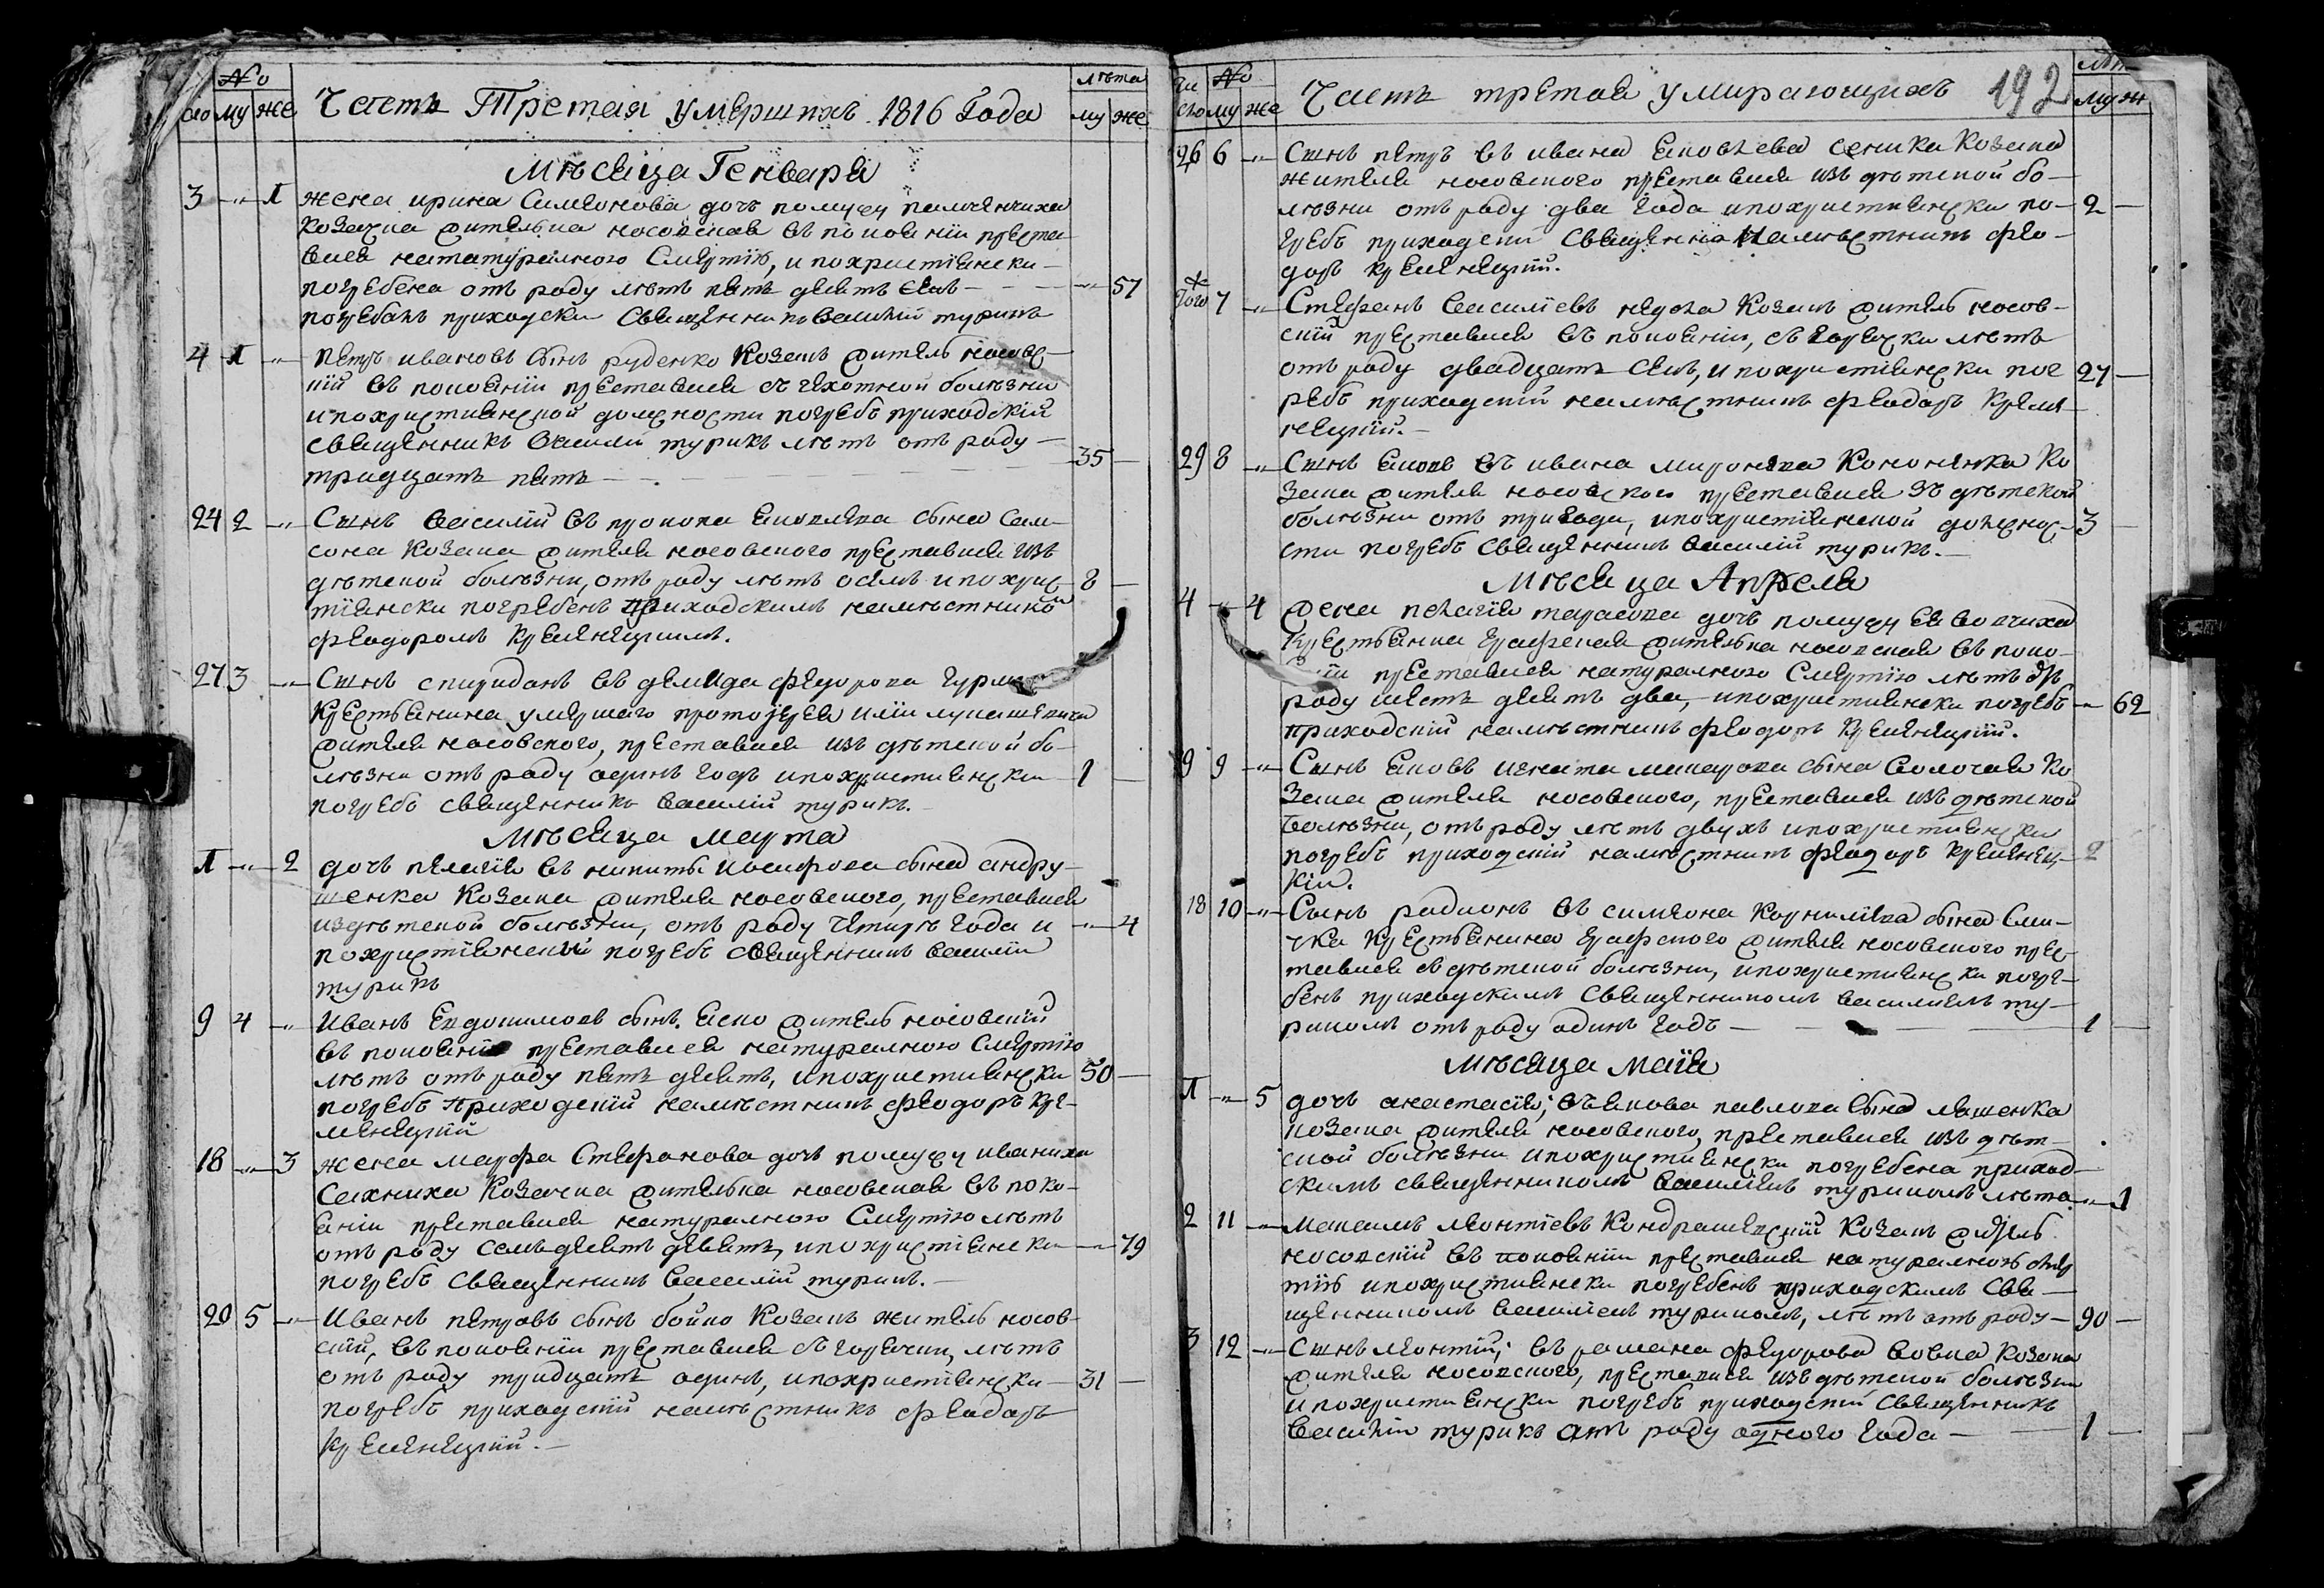 № лѣта
сло му же Часть Третая умершихъ 1816 Года му же
Мѣсяца Генваря
3 „ 1 жена ирина Симеонова дочъ помужу
козачка жителка носовская въ покоянїи преста
вися натуралною Смертїю, и похристїянски
погребена отъ роду лѣтъ пять десятъ семъ „ 57
погребалъ приходски Священникъ Василий турикъ
4 1 „ петръ ивановъ сынъ руденко козакъ житель носовс
кїй въ покоянїи преставися съ чихотной болѣзни
и похристиянской должности погребъ приходскїй
священникъ василий турикъ лѣтъ отъ роду
тридцать пять 35
24 2 „ Сынъ василїй въ прокопа яковлева сына сам
сона козака жителя носовского преставися изъ
дѣтской болѣзни, отъ роду лѣтъ осемъ и похрис 8
тїянски погребенъ приходскимъ намѣстникомъ
феодоромъ кременецкимъ.
27 3 „ Сынъ спиридонъ въ демида федорова
крестьянина умершаго протоїерея илїи
жителя носовского, преставися изъ дѣтской бо
лѣзни отъ роду одинъ годъ и похристиянски 1
погребъ священникъ василїй турикъ.
Мѣсяца марта
1 „ 2 дочъ пелагїя въ никиты иосифова сына андру
шенка козака жителя носовского, преставися
издѣтской болѣзни, отъ роду четыре года и „ 4
похристїянский погребъ священникъ василїй
турикъ
9 4 „ Иванъ Евдокимовъ сынъ яско житель носовскїй
въ покоянїи преставися натуралною смертїю
лѣтъ отъ роду пять десятъ, и похристиянски 50
погребъ приходскїй намѣстникъ феодоръ кре
менецкїй
18 „ 3 жена марфа Стефанова дочъ помужу иваниха
Сахниха козачка жителка носовская въ пока
янїи преставися натуралною Смертїю лѣтъ
отъ роду семъ десятъ девять, и похристїянски „ 79
погребъ священникъ василїй турикъ.
20 5 „ Иванъ петровъ сынъ бойко козакъ житель носов
скїй, въ покоянїи преставися съ горячки, лѣтъ
отъ роду тридцать одинъ, и похристїянски 31
погребъ приходскїй намѣстникъ феодоръ
кременецкїй.
чи № лѣт
сло му же Часть третая умирающихъ 192 му ж
26 6 „ Сынъ петръ въ ивана яковлева сеника козака
жителя носовского преставися изъ дѣтской бо
лѣзни отъ роду два года и похристиянски по 2
гребъ приходскїй намѣстникъ фео
доръ кременецкїй.
того 7 „ Стефанъ василїевъ козакъ житель носов
скїй преставися въ покоянїи, съ горячки лѣтъ
отъ роду двадцать семъ, и похристїянски пог 27
ребъ приходскїй намѣстникъ феодоръ креме
нецкїй.
29 8 „ Сынъ яковъ въ ивана миронова кононенка ко
зака жителя носовского преставися зъ дѣтской
болѣзни отъ три года, и похристїянской должнос 3
сти погребъ священникъ василїй турикъ.
Мѣсяца Апреля
4 „ 4 жена пелагїя тарасова дочъ помужу
крестьянка графская жителка носовская въ поко
преставися натуралною смертїю лѣтъ отъ
роду шесть десятъ два, и похристиянски погребъ „ 62
приходскїй намѣстникъ феодоръ кременецкїй.
9 9 „ Сынъ яковъ игната макарова сына волочая ко
зака жителя носовского, преставися изъ дѣтской
болѣзни, отъ роду лѣтъ двухъ и похристиянски
погребъ приходскїй намѣстникъ феодоръ кременец 2
кїй.
18 10 „ Сынъ радионъ въ симеона корнилїева сына
чка крестьянина графского жителя носовского прес
тавися съ дѣтской болѣзни, и похристиянски погре
бенъ приходскимъ священникомъ василиемъ ту
рикомъ отъ роду одинъ годъ 1
Мѣсяца маїя
1 „ 5 дочъ анастасїя; въ якова павлова сына ляшенка
козака жителя носовского, преставися изъ дѣт
ской болѣзни и похристиянски погребена приход
скимъ священникомъ василиемъ турикомъ лѣта „ 1
2 11 „ Максимъ леонтїевъ козакъ житель
носовскїй въ покоянїи преставися натуралною смер
тїю и похристиянски погребенъ приходскимъ свя
щенникомъ василиемъ турикомъ, лѣтъ отъ роду 90
3 12 „ Сынъ леонтїй; въ романа федорова вовка козака
жителя носовского, преставися изъ дѣтской болѣзни
и похристиянски погребъ приходскїй священникъ
василїй турикъ отъ роду одного года 1